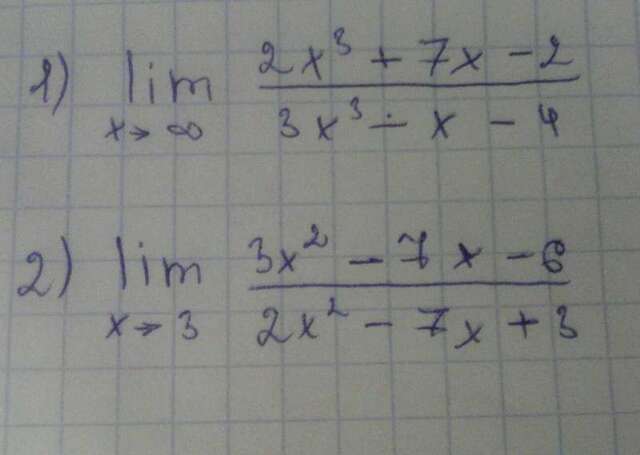 1) lim 2x³ + 7x - 2
x→∞ 3x³ - x - 4
2) lim 3x² - 7x - 6
x→3 2x² - 7x + 3